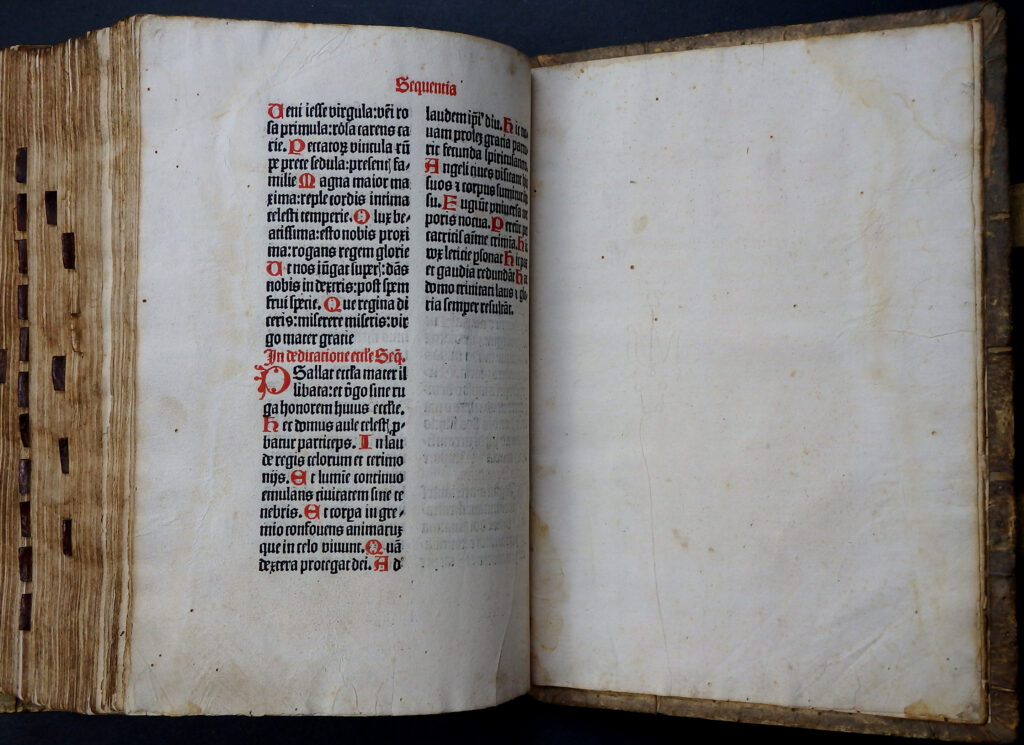 Sequentia
Ueni iesse virgula:vēi ro
sa primula:rosa carens ca
rie. Peccatoꝝ vincula rūpe prece sedula:presenꝭ fa⸗
milie Magna maior ma
xima:reple cordis intima
celesti temperie. O lux be⸗
atissima:esto nobis proxi
ma:rogans regem glorie
Ut nos iūgat superꝭ:dās
nobis in dexteris:post spem
frui specie. Que regina di
ceris:miserere miseris:vir
go mater gratie
In dedicatione eccłie Seq̄.
PSallat eccłia mater il
libata:et v̄go sine ru
ga honorem huius ecclie.
Hec domus aule celestꝭ ꝓ⸗
batur particeps. In lau
de regis celorum et cerimo
nijs. Et lumīe continuo
emulans ciuitatem sine te
nebris. Et corpa in gre⸗
mio confouens animaruꝫ
que in celo viuunt. Quā
dextera protegat dei. Ad
laudem ip̄iꝰ diu. Hic no
uam prolez gratia
rit fecunda spiritu
Angeli ciues visitant
suos ⁊ corpus sumitur
su. Fugiūt vniuersa
poris nocua. Pereūt
catricis aīme crimia.
vox leticie ꝑsonat
et gaudia redundāt
domo trinitati laus ⁊ glo
ria semper resultāt.